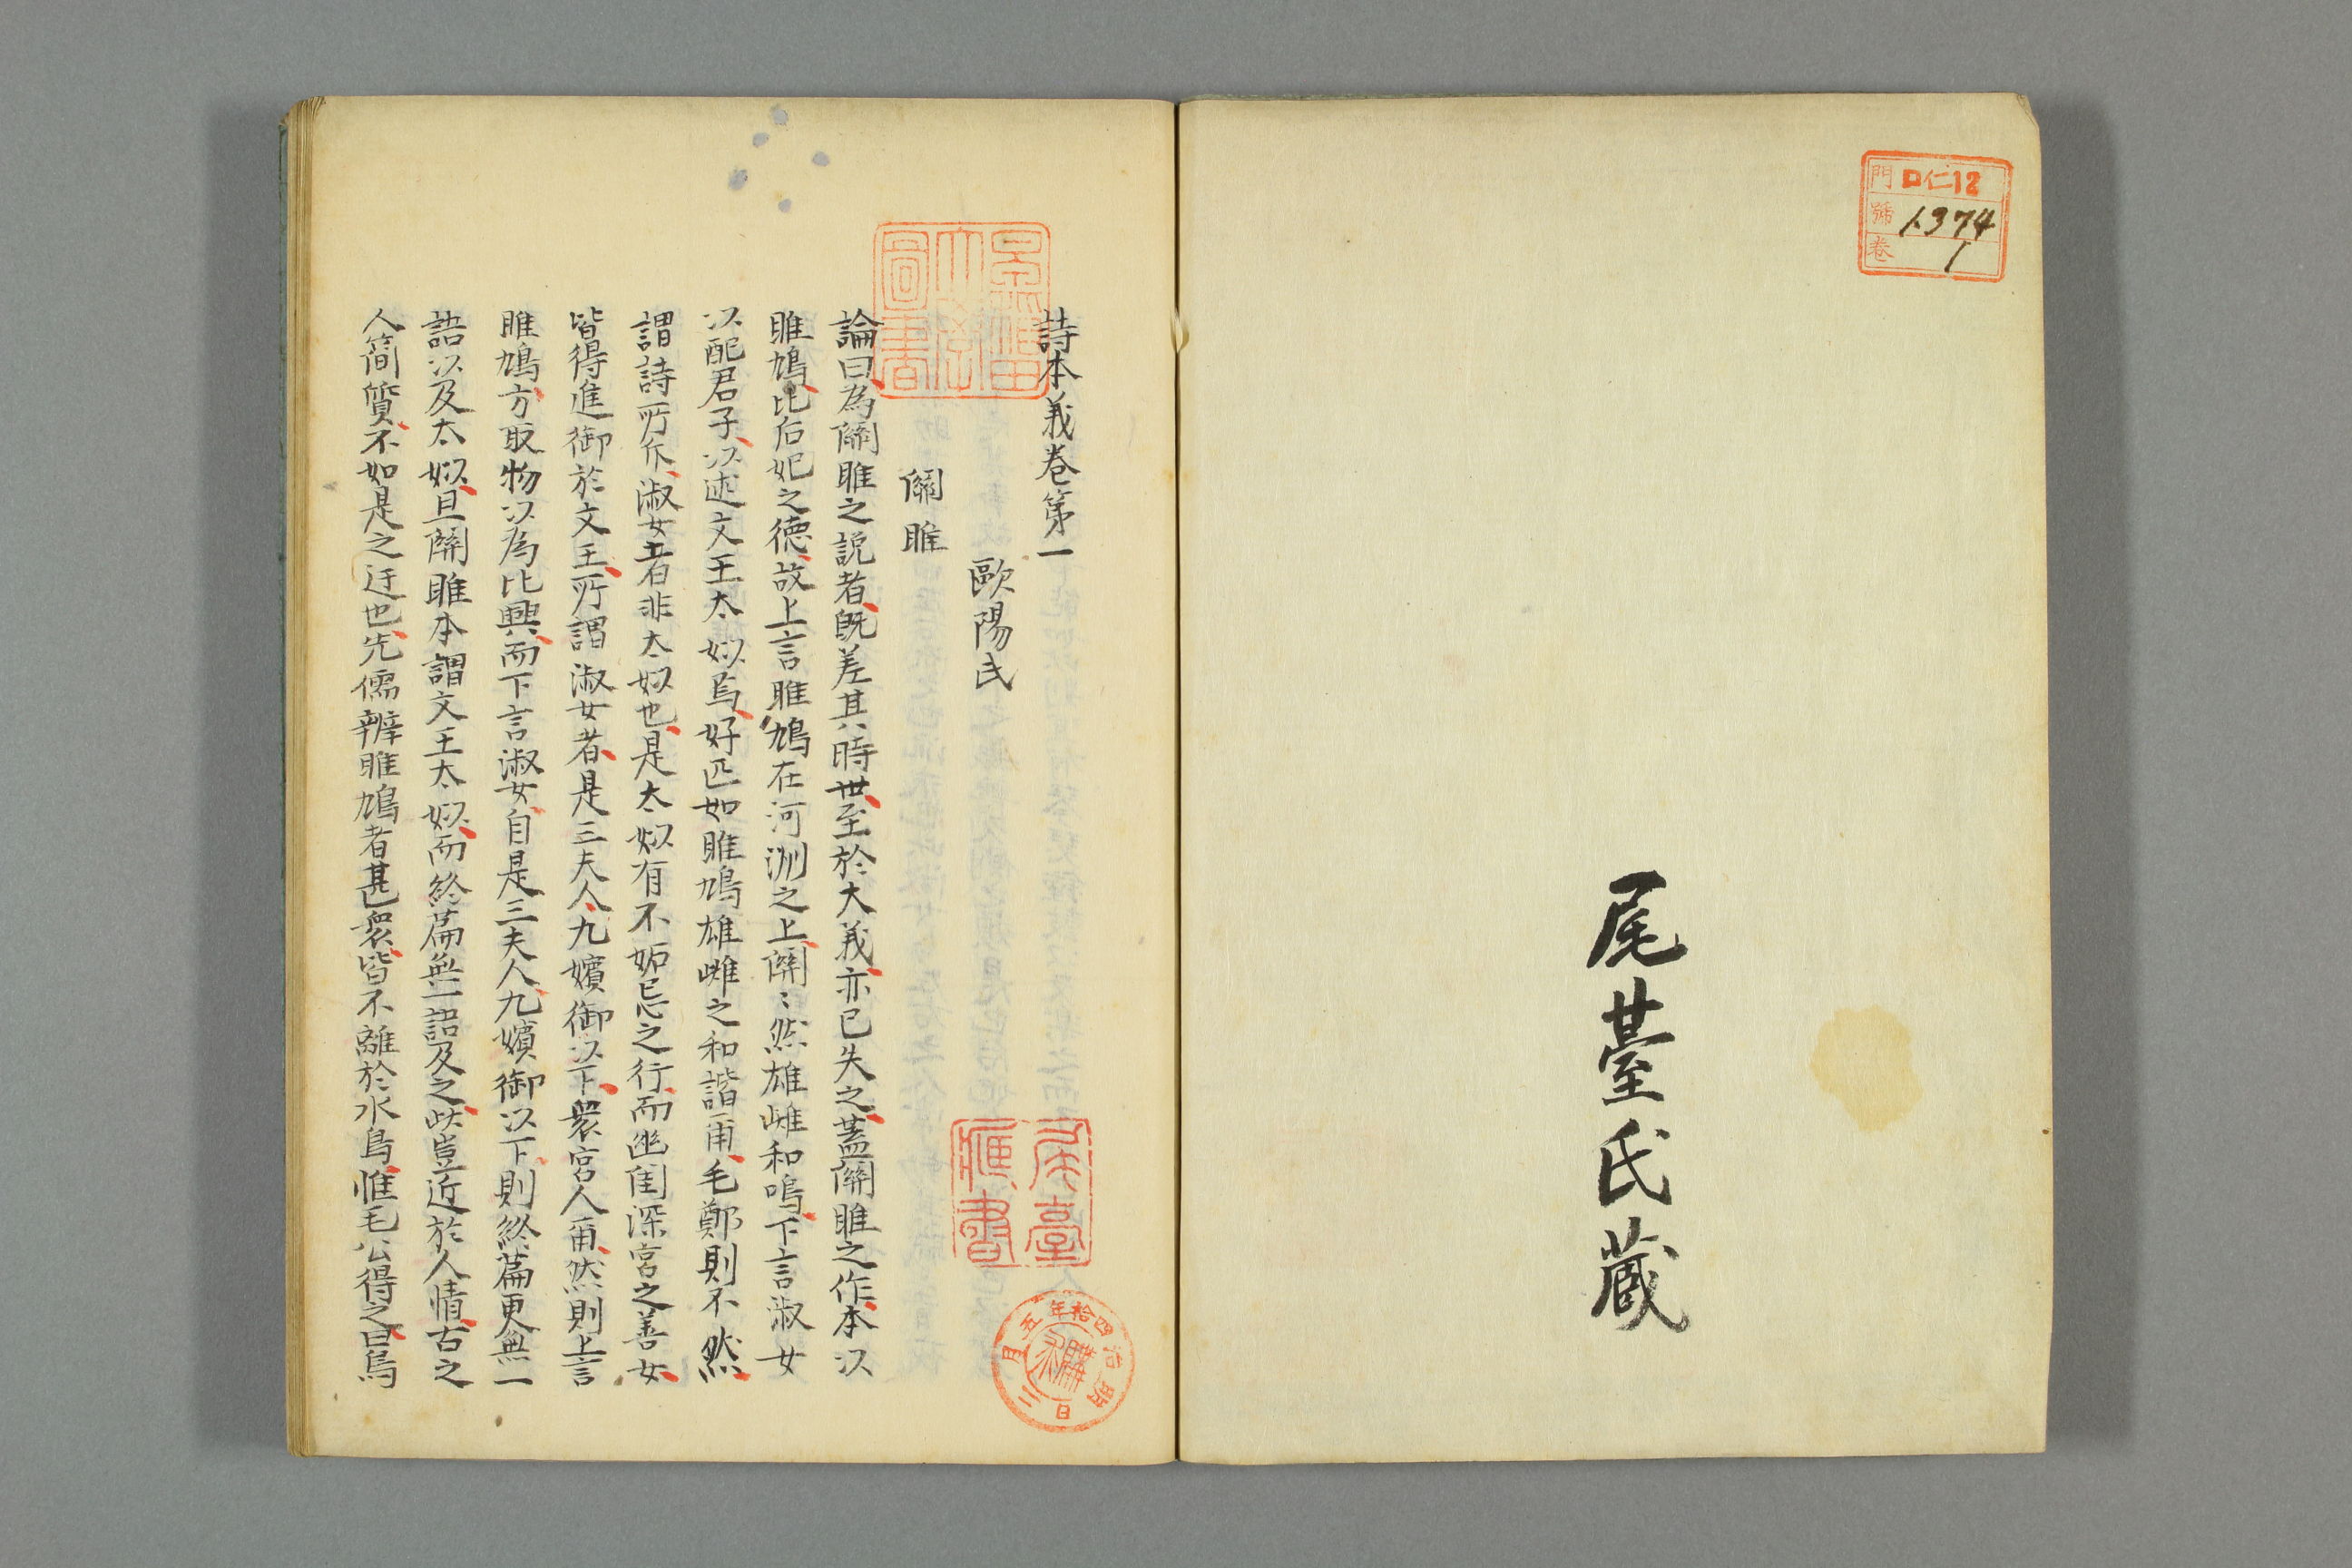 門 ロ仁12
號 1374
巻 1
尾䑓氏蔵
詩本義巻第一
歐陽氏
關雎
論曰為關雎之説者既差其時世至於大義亦已失之蓋關雎之作本以
雎鳩比后妃之徳故上言雎鳩在河洲之上關〻然雄雌和鳴下言淑女
以配君子以述文王太姒為好匹如雎鳩雄雌之和諧甭毛鄭則不然
謂詩所斥淑女者非太姒也是太姒有不妬忌之行而幽閨深宮之善女
皆得進御於文王所謂淑女者是三夫人九嬪御以下衆宮人甭然則上言
雎鳩方取物以為比興而下言淑女自是三夫人九嬪御以下則終篇更無一
語以及太姒且關雎本謂文王太姒而終篇無一語及之此豈近於人情古之
人簡質不如是之迂也先儒辨雎鳩者甚衆皆不離於水鳥惟毛公得之曰鳥
圖書
尾臺
蔵書
明治四拾年五月三日